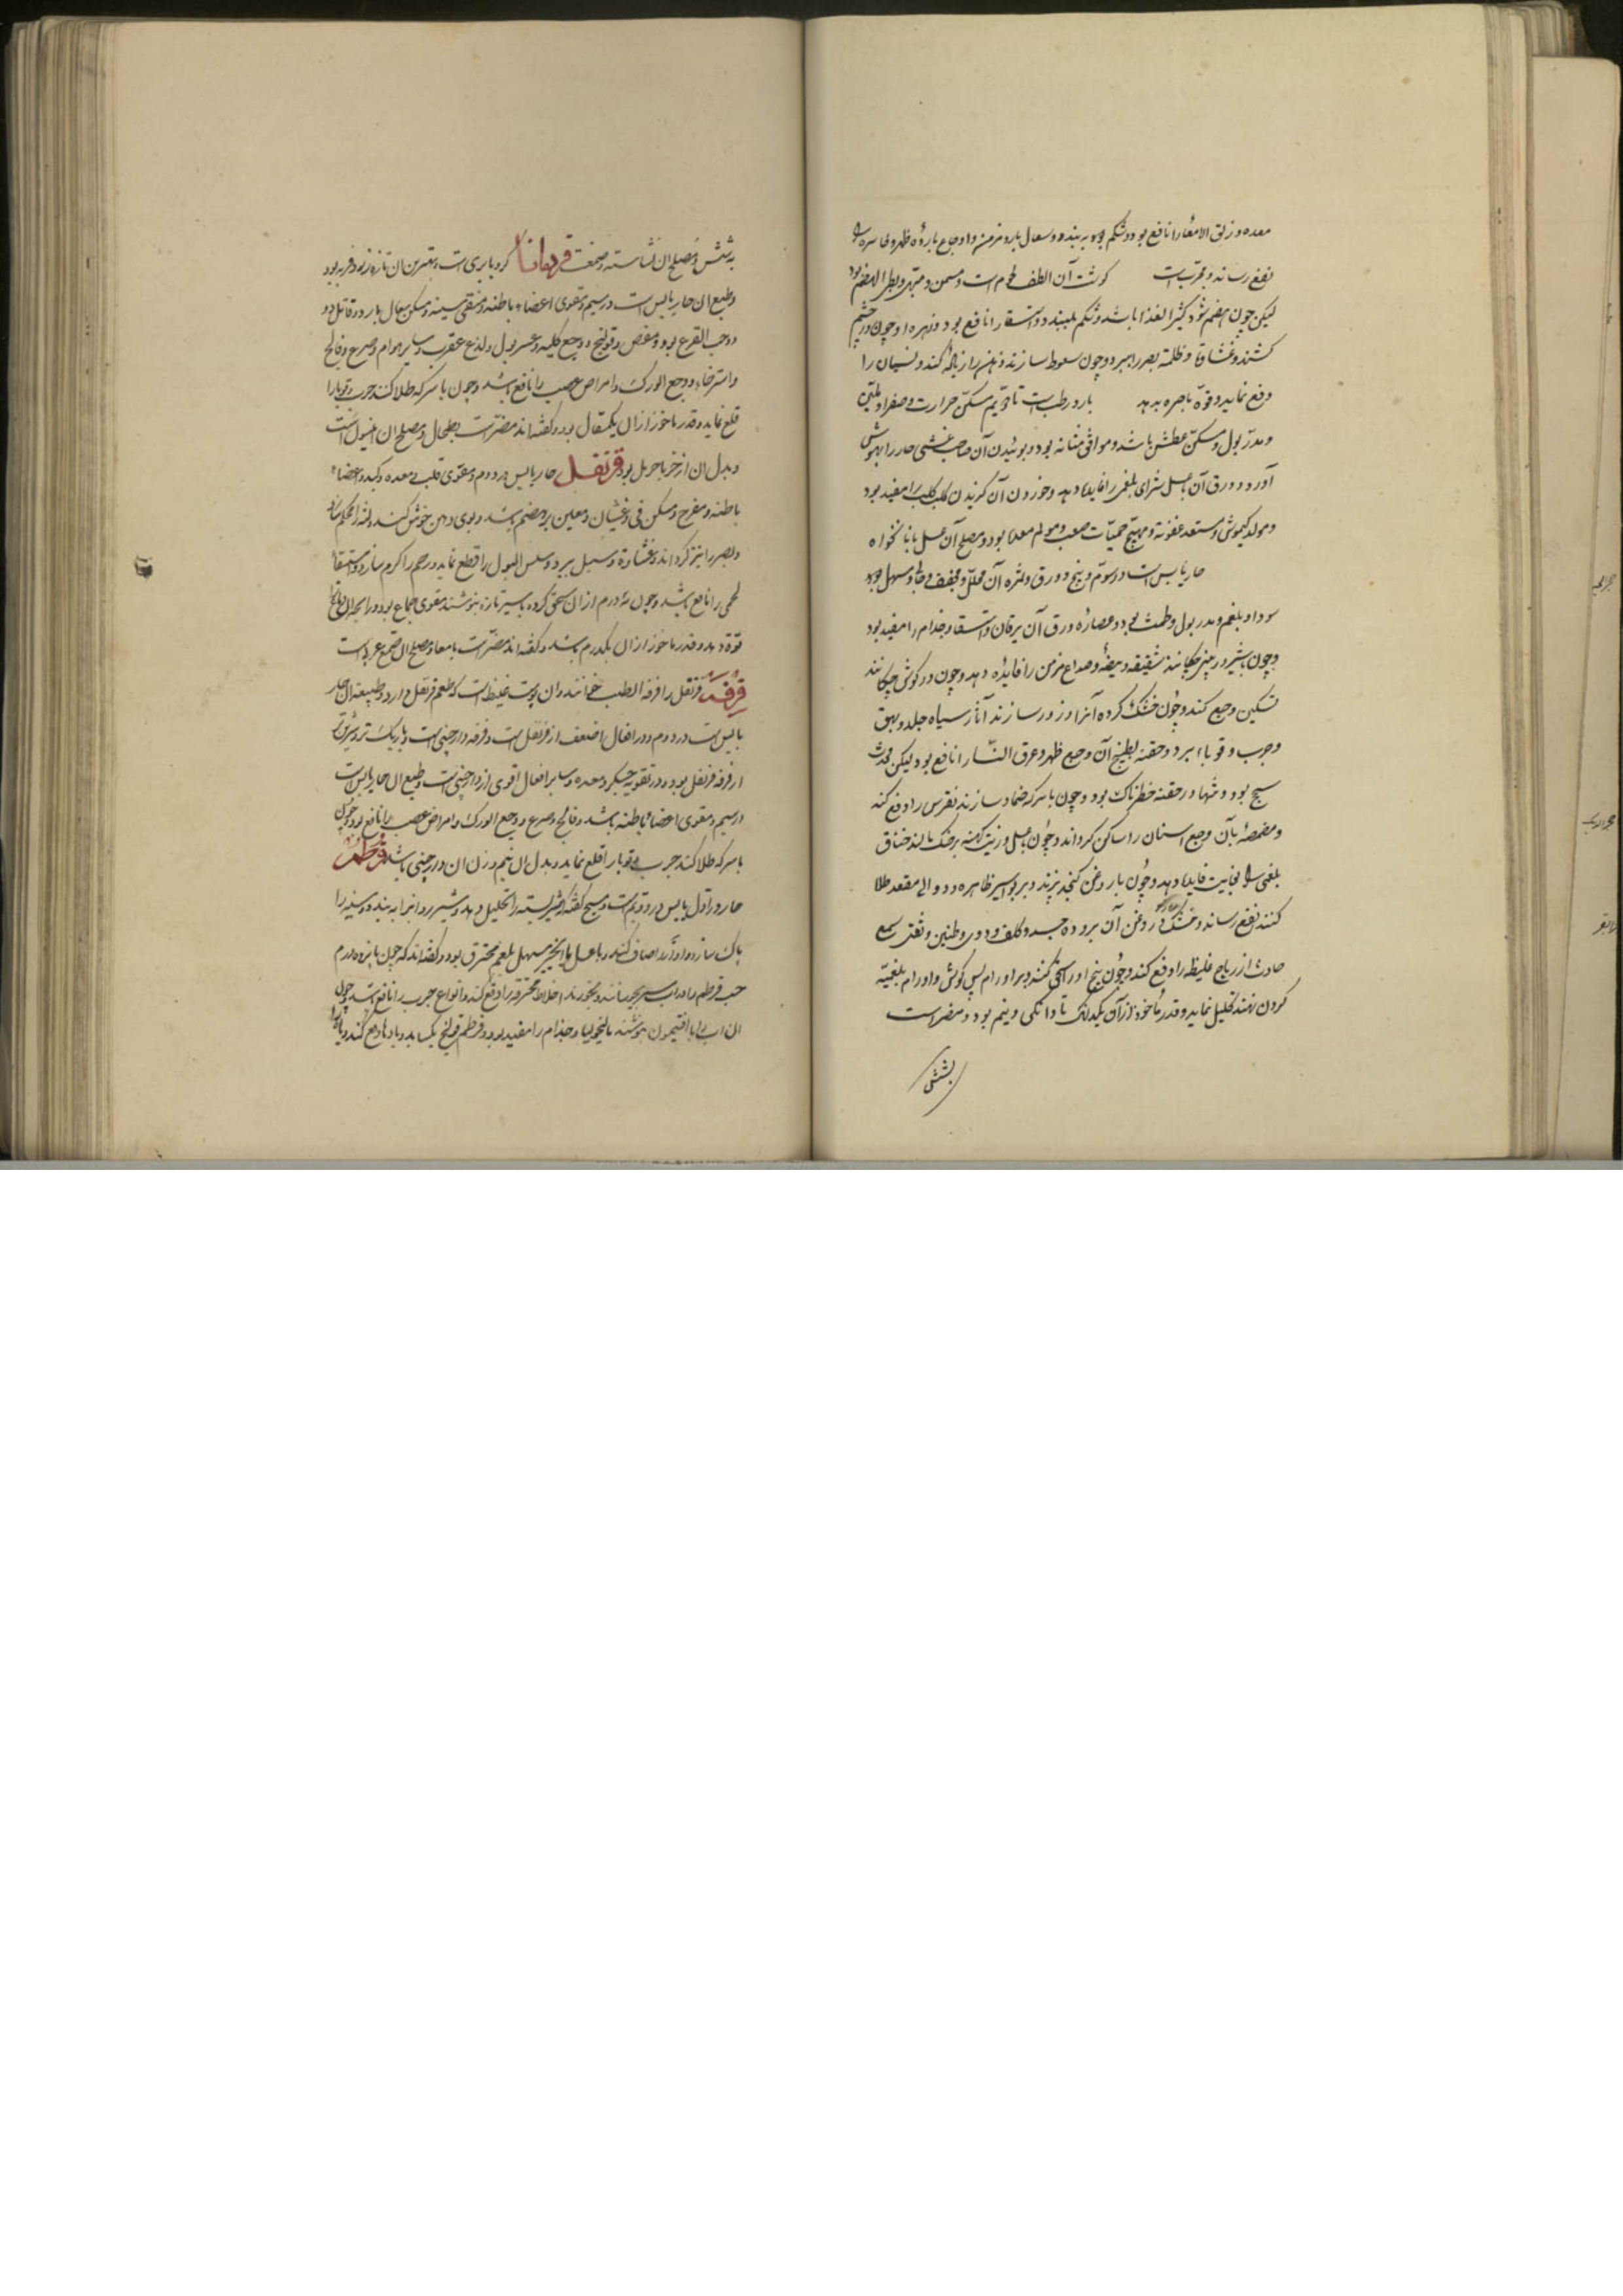 معده و زلق الامعا را نافع بود و شکم به بندد و سعال بارد مزمن و اوجاع بارده ظهر و خاصره را
نفع رساند و مجرب است گوشت آن الطف لحوم است و مسمن و مبهی و بطی الهضم بود
لیکن چون هضم شود کثیر الغذا باشد و شکم ببندد و استسقا را نافع بود و زهره او چون در چشم
کشند و غشاوة و ظلمة بصر را ببرد و چون سعوط سازند ذهن را زیاده کند و نسیان را
دفع نماید و قوة باصره بدهد بارد رطب است تا دویم مسکن حرارت و صفرا و ملین
و مدر بول و مسکن عطش باشد و موافق مثانه بود و بوئیدن آن صاحب غشی حار را بهوش
آورد و ورق آن با عسل شرای بلغمی را فایده دهد و خوردن آن گزیدن کلب کلب را مفید بود
و مولد کیموش مستعد عفونة و مهیج حمیات صعب و مولم معده بود و مصلح آن عسل یا نانخواه
حار یابس است در سوم و بیخ و ورق و ثمره آن محلل و مجفف و جالی و مسهل
سودا و بلغم و مدر بول و طمث بود و عصاره ورق آن یرقان و استسقا و جذام را مفید بود
و چون با شیر در بینی چکانند شقیقه و بیضه و صداع مزمن را فایده دهد و چون در گوش چکانند
تسکین وجع کند و چون خشک کرده آنرا ذرور سازند آثار سیاه جلد و بهق
و جرب و قوبا ببرد و حقنه بطبیخ آن وجع ظهر و عرق النسا را نافع بود لیکن محدث
سحج بود و تنها در حقنه خطرناک بود و چون با سرکه ضماد سازند نقرس را دفع کند
و مضمضه بآن وجع اسنان را ساکن گرداند و چون بعسل و زیت کهنه بر حنک مالند خناق
بلغمی را بغایت فایده دهد و چون با روغن کنجد بپزند و بر بواسیر ظاهره و دوالی مقعد طلا
کنند نفع رساند و روغن آن برودة جسد و کلف و دوی و طنین و ثقل سمع
حادث از ریاح غلیظه را دفع کند و چون بیخ او را سحق کنند و بر اورام پس گوش و اورام بلغمیه
گردن نهند تحلیل نماید و قدر ماخوذ از آن یکدانک تا دانکی و نیم بود و مضر است
بشش
به شش و مصلح ان نشاسته و صمغ است قردمانا کرویا بری است و بهترین ان تازه زرد فربه بود
و طبع ان حار یابس است در سیم و مقوی اعضاء باطنه و منقی سینه و مسکن سعال بارد و قاتل دود
و حب القرع بود و مغص و قولنج و وجع کلیه و عسر بول و لدغ عقرب و سایر هوام و صرع و فالج
و استرخا و وجع الورک و امراض عصب را نافع باشد و چون با سرکه طلا کنند جرب و قوبا را
قلع نماید و قدر ماخوذ از ان یکمثقال بود و گفته اند مضر است بطحال و مصلح ان انیسون است
و بدل ان اذخر یا حرمل بود قرنفل حار یابس در دوم و مقوی قلب و معده و کبد و اعضاء
باطنه و مفرح و مسکن قی و غثیان و معین بر هضم باشد و بوی دهن خوش کند و لثه را محکم سازد
و بصر را تیز گرداند و غشاوة و سبل ببرد و سلس البول را قطع نماید و رحم را گرم سازد و استسقاء
لحمی را نافع باشد و چون نیم درم از ان سحق کرده با شیر تازه بنوشند مقوی جماع بود و رایحه ان دماغ را
قوة دهد و قدر ماخوذ از ان یکدرم باشد و گفته اند مضر است بامعا و مصلح ان صمغ عربی است
قرفه قرنفل را قرفة الطیب خوانند و ان پوست غلیظ است که طعم قرنفل دارد و طبیعة ان حار
یابس است در دوم و در افعال اضعف از قرنفل است و قرفه دارچینی است و باریک تر و سرخ تر
از قرفه قرنفل بود و در تقویه جگر و معده و سایر افعال اقوی از دارچینی است و طبع ان حار یابس است
در سیم و مقوی اعضاء باطنه باشد و فالج و صرع و وجع الورک و امراض عصب را نافع بود و چون
با سرکه طلا کنند جرب و قوبا را قلع نماید و بدل ان نیم وزن ان دارچینی باشد قرطم
حار در اول یابس در دویم است و مسیح گفته شیر بسته را تحلیل دهد و شیر روان را به بندد و سینه را
پاک سازد و آواز را صاف کند و با عسل یا انجیر مسهل بلغم محترق بود و گفته اند که چون پانزده درم
حب قرطم با دوراب شیر بجوشانند و بخورند اخلاط محترقه را دفع کند و انواع جرب را نافع باشد و چون
ان آب را با افتیمون بنوشند مالیخولیا و جذام را مفید بود و قرطم قولنج بگشاید و بادها دفع کند و باه را